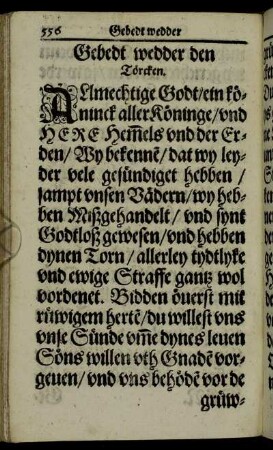 556 Gebedt wedder
Gebedt wedder den
Törcken.
ALmechtige Godt / ein kö-
ninck aller Köninge / vnd
HERE Hem̃els vnd der Er-
den / Wy bekennē / dat wy ley-
der vele gesündiget hebben /
sampt vnsen Vädern / wy heb-
ben Mißgehandelt / vnd synt
Godtloß gewesen / vnd hebben
dynen Torn / allerley tydtlyke
vnd ewige Straffe gantz wol
vordenet. Bidden öuerst mit
rüwigem hertē / du willest vns
vnse Sünde vm̄e dynes leuen
Söns willen vth Gnadē vor-
geuen / vnd vns behödē vor de
grüw-